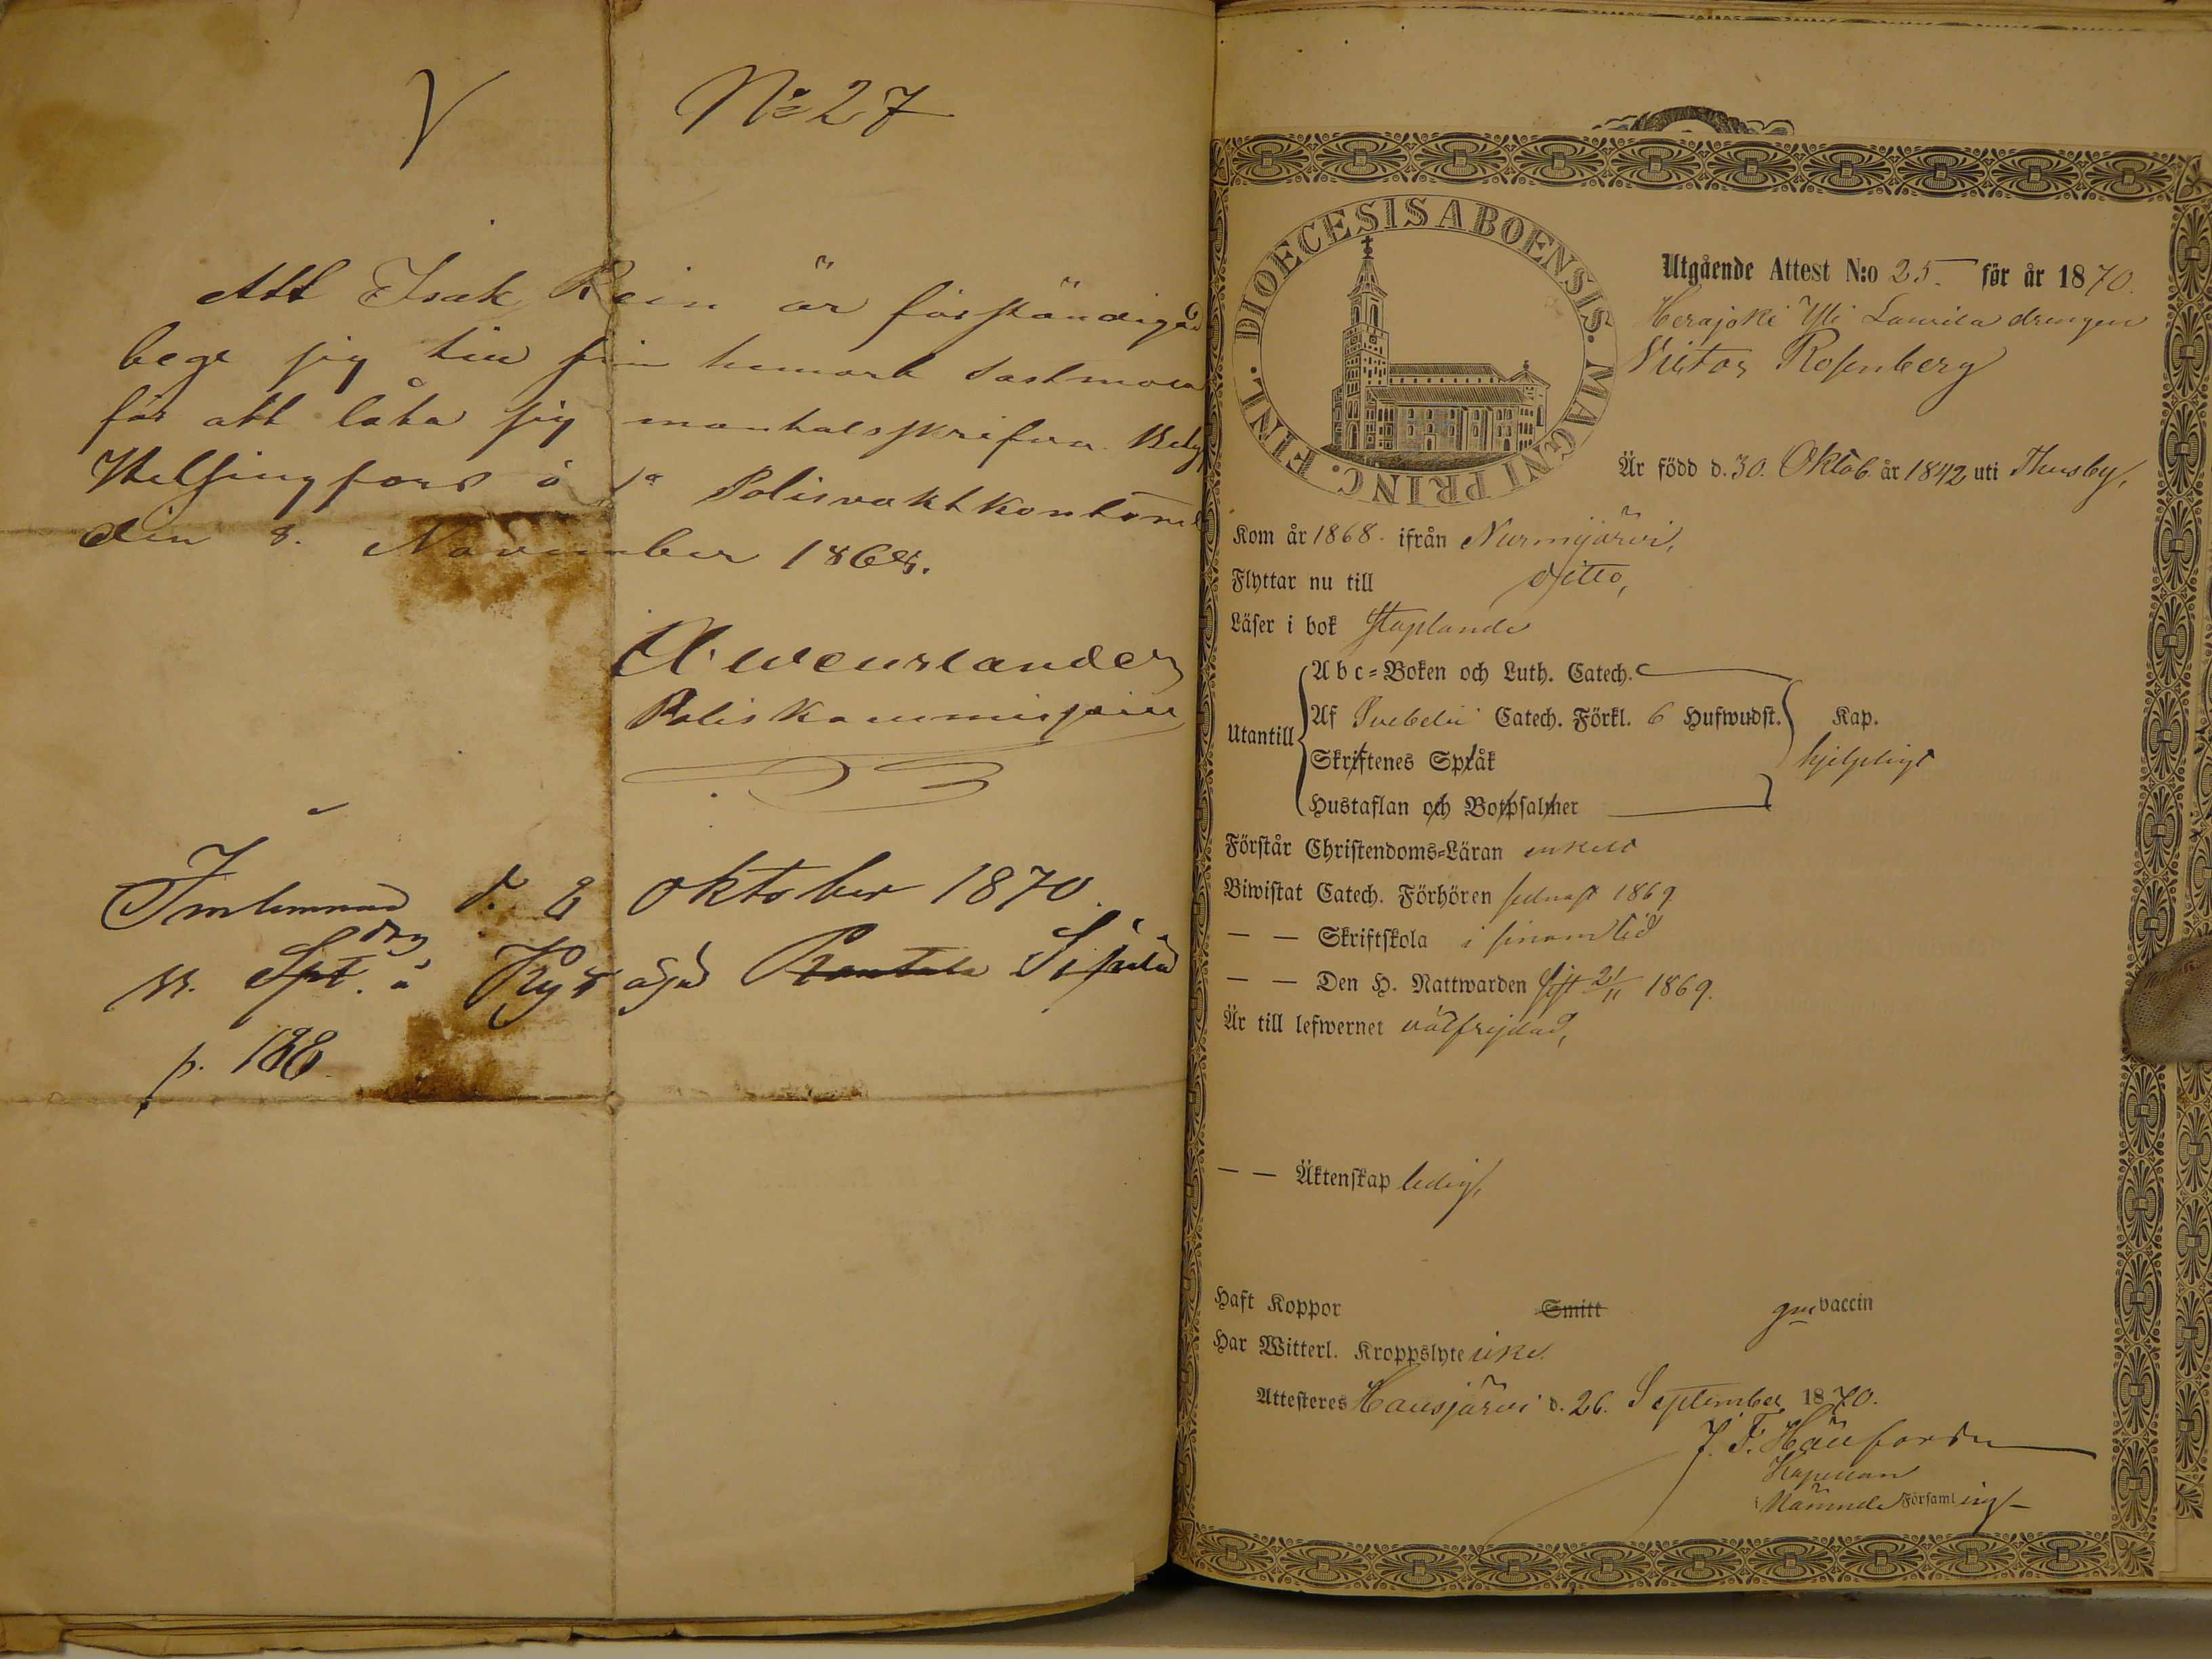 V
No 27
Att Isak Rein är förständigad
bege sig till sin hemort Sastmola
för att låta sig mantalsskrifva. Bety
Helsingfors å 1a Polisvaktkontoret
den 8. November 1868.
Polis Kommissarie
d. 8 oktober 1870.
Spt. å
p. 188
DIOECESIS ABOENSIS. MAGNI PRINC. FINL.
Utgående Attest N:o 25. för år 1870.
Herajoki Yli Laurila drengen
Victor Rosenberg
Är född d. 30. Oktob. år 1842 uti Thusby,
Kom år 1868. ifrån Nurmijärvi,
Flyttar nu till ditto,
Läser i bok staplande
Utantill
Abc-Boken och Luth. Catech.
Af Svebelii Catech. Förkl. 6 Hufwudst. Kap.
Skriftenes Språk hjelpligt
Hustaflan och Botpsalmer
Förstår Christendoms-Läran enkelt
Biwistat Catech. Förhören sednast 1869
— — Skriftskola i sinom tid
— — Den H. Nattwarden sist 21/11 1869.
Är till lefwernet välfrejdad,
— — Äktenskap ledig,
Haft Koppor Smitt gm vaccin
Har Witterl. Kroppslyte icke.
Attesteres Hausjärvi d. 26. September 1870.
Kapellan
i Nämnde Församling